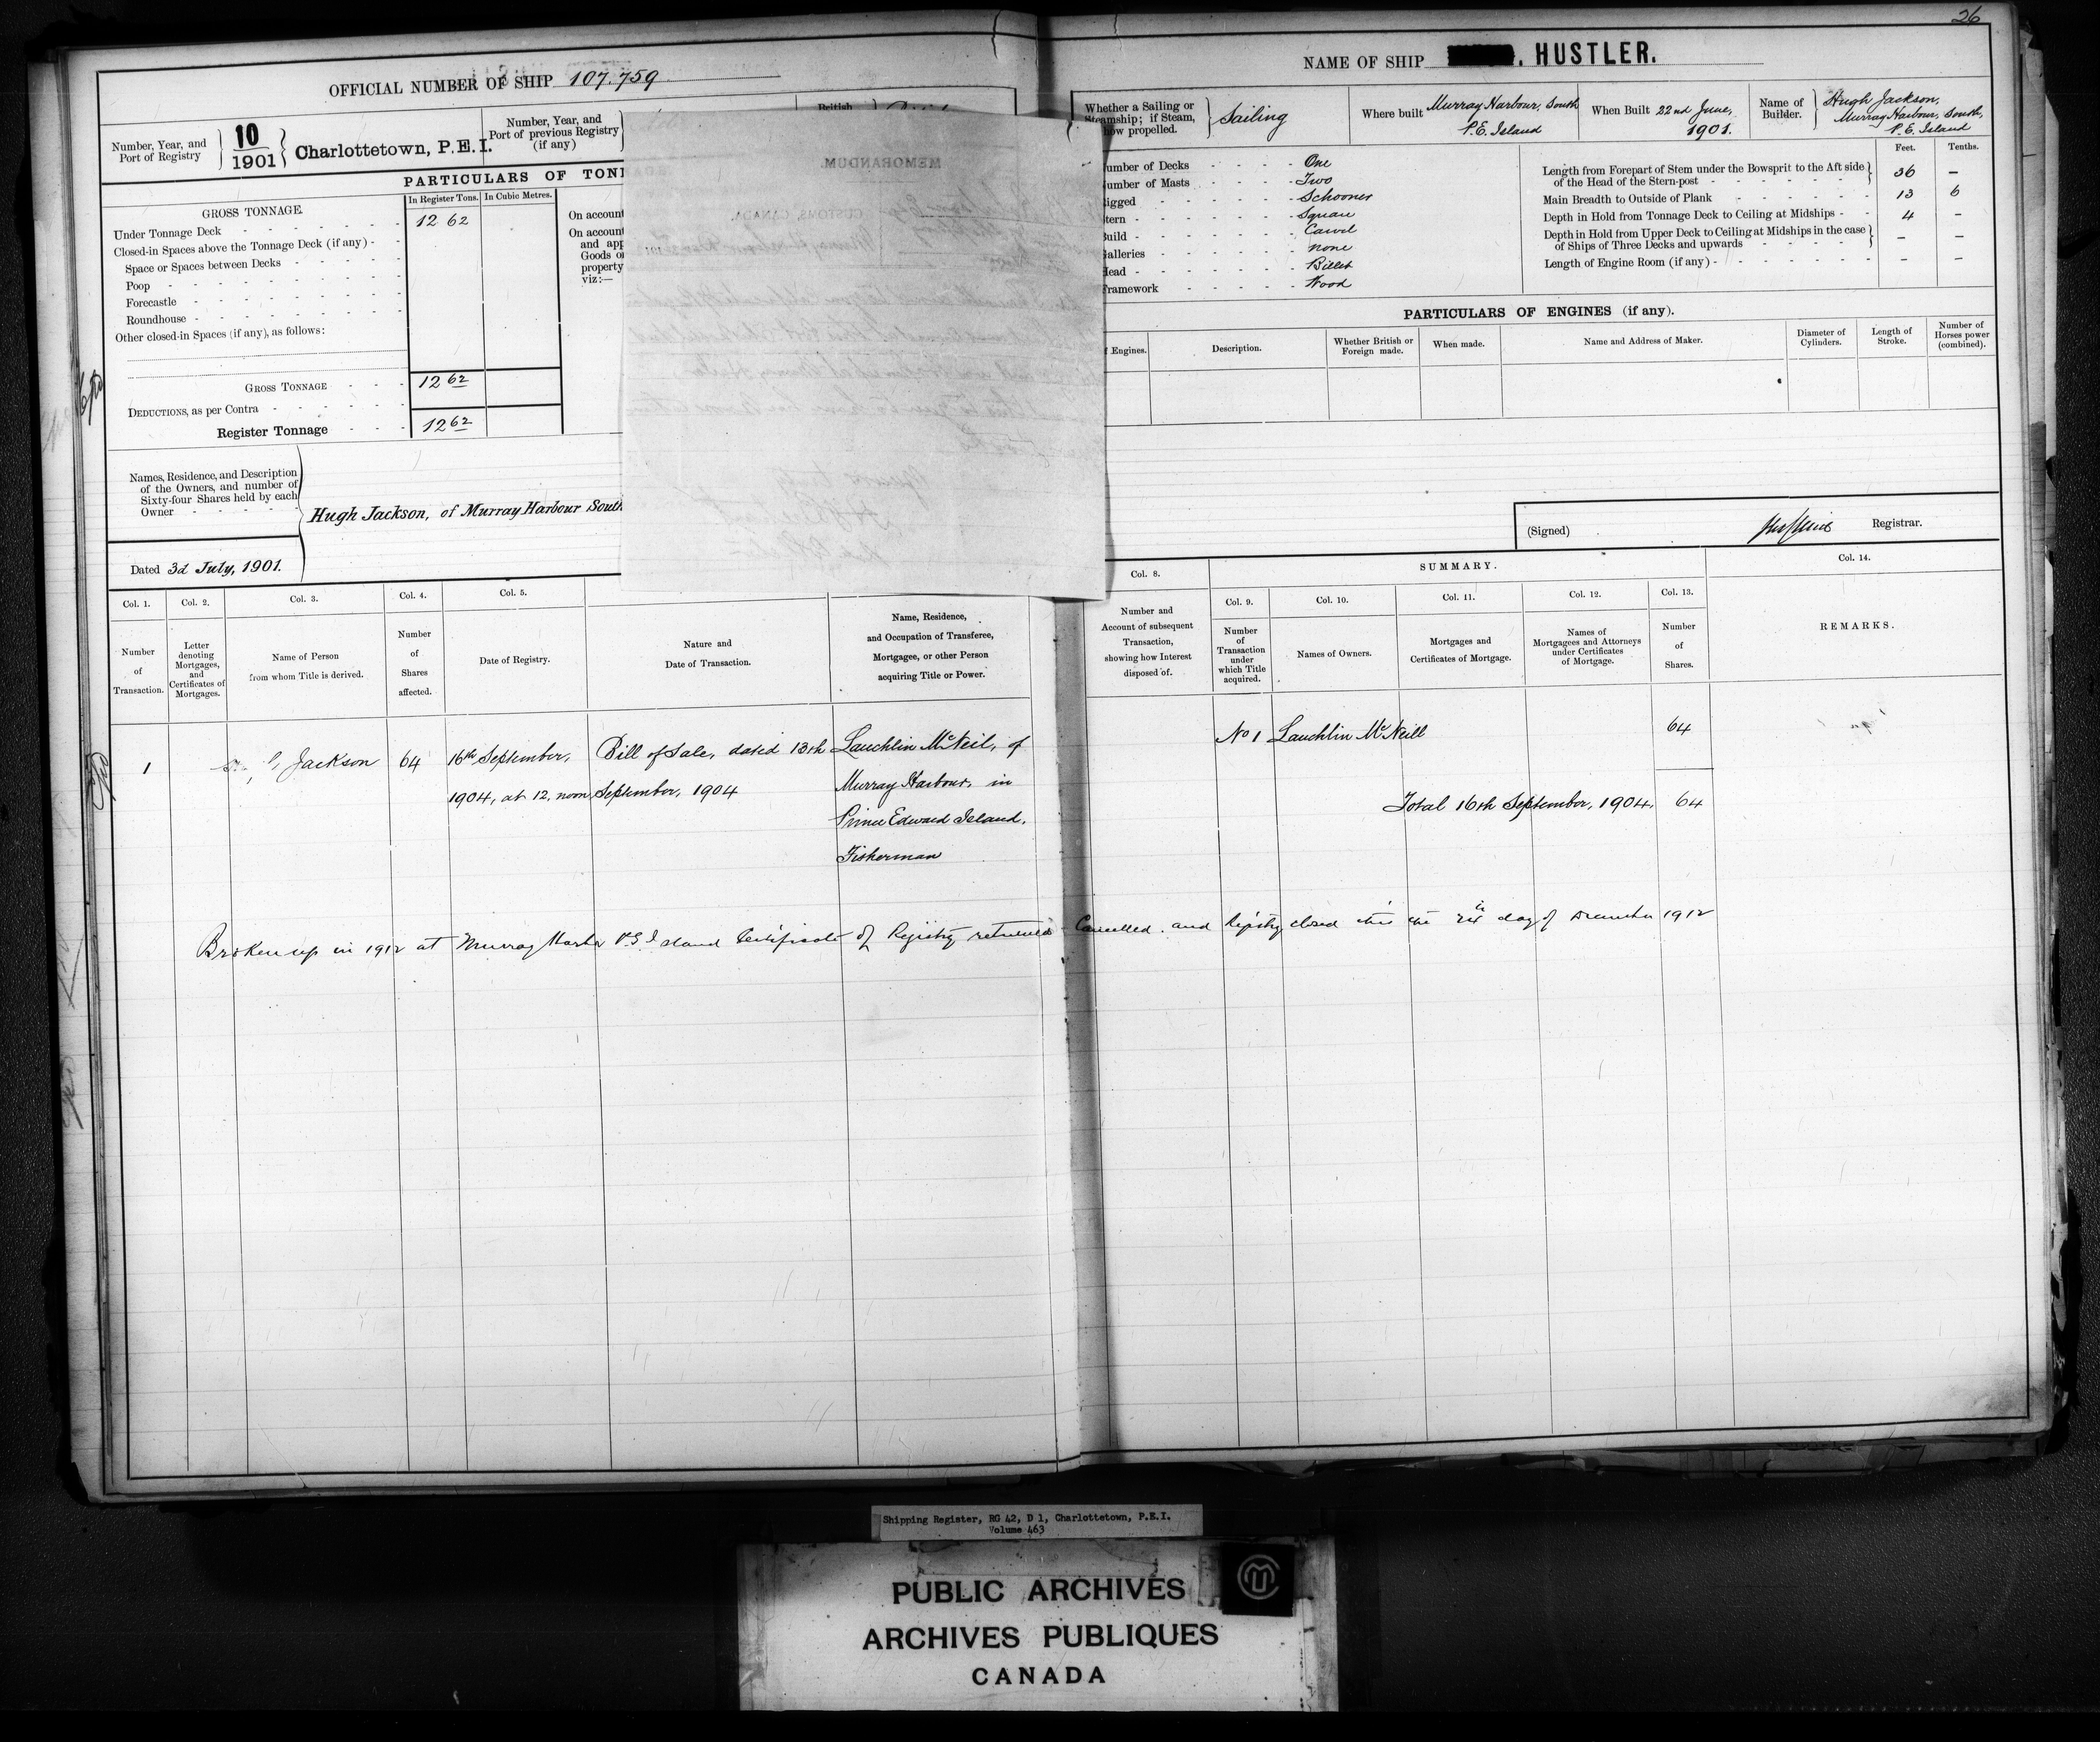 26
OFFICIAL NUMBER OF SHIP 107.759
Number, Year, and Port of Registry
10
1901
Charlottetown, P.E.I.
Number, Year, and Port of previous Registry (if any)
British
PARTICULARS OF TON
In Register Tons. In Cubic Metres.
GROSS TONNAGE.
Under Tonnage Deck 12 62
Closed-in Spaces above the Tonnage Deck (if any)
Space or Spaces between Decks
Poop
Forecastle
Roundhouse
Other closed-in Spaces (if any), as follows:
On account
On account
and app
Goods o
property
viz:—
GROSS TONNAGE 12 62
DEDUCTIONS, as per Contra
Register Tonnage 12 62
MEMORANDUM.
CUSTOMS, CANADA.
Names, Residence, and Description
of the Owners, and number of
Sixty-four Shares held by each
Owner
Hugh Jackson, of Murray Harbour South
Dated 3d July, 1901.
Col. 1. Col. 2. Col. 3. Col. 4. Col. 5.
Number of Transaction.
Letter denoting Mortgages, and Certificates of Mortgages.
Name of Person from whom Title is derived.
Number of Shares affected.
Date of Registry.
Nature and Date of Transaction.
Name, Residence, and Occupation of Transferee, Mortgagee, or other Person acquiring Title or Power.
1 Jackson 64 16th September, Bill of Sale, dated 13th Lauchlin McNeil, of
1904, at 12, noon, September, 1904 Murray Harbour, in
Prince Edward Island,
Fisherman
NAME OF SHIP HUSTLER.
Whether a Sailing or Steamship; if Steam, how propelled. Sailing
Where built Murray Harbour, South P.E. Island
When Built 22nd June, 1901.
Name of Builder. Hugh Jackson, Murray Harbour, South, P.E. Island
Feet. Tenths.
umber of Decks One
umber of Masts Two
igged Schooner
tern Square
uild Carvel
alleries None
ead Billet
ramework Wood
Length from Forepart of Stem under the Bowsprit to the Aft side
of the Head of the Stern-post 36 –
Main Breadth to Outside of Plank 13 6
Depth in Hold from Tonnage Deck to Ceiling at Midships 4 –
Depth in Hold from Upper Deck to Ceiling at Midships in the case
of Ships of Three Decks and upwards – –
Length of Engine Room (if any) – –
PARTICULARS OF ENGINES (if any).
f Engines.
Description.
Whether British or Foreign made.
When made.
Name and Address of Maker.
Diameter of Cylinders.
Length of Stroke.
Number of Horses power (combined).
(Signed) Registrar.
Col. 8.
SUMMARY.
Col. 14.
Col. 9. Col. 10. Col. 11. Col. 12. Col. 13.
Number and Account of subsequent Transaction, showing how Interest disposed of.
Number of Transaction under which Title acquired.
Names of Owners.
Mortgages and Certificates of Mortgage.
Names of Mortgagees and Attorneys under Certificates of Mortgage.
Number of Shares.
REMARKS.
No 1 Lauchlin McNeill 64
Total 16th September, 1904, 64
Broken up in 1912 at Murray Harbor P.E. Island Certificate of Registry returned Cancelled and Registry closed this the day of December 1912
Shipping Register, RG 42, D 1, Charlottetown, P.E.I.
Volume 463
PUBLIC ARCHIVES
ARCHIVES PUBLIQUES
CANADA